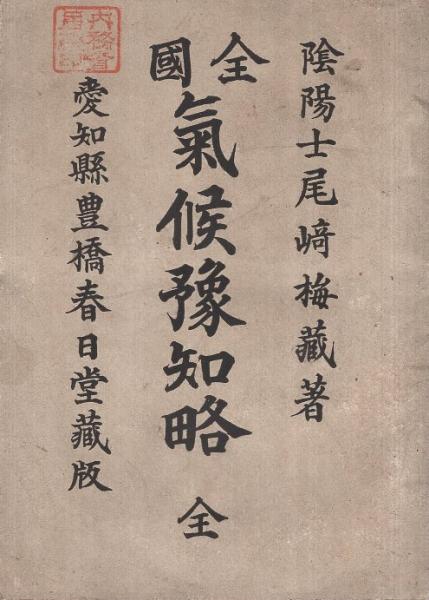 陰陽士尾﨑梅藏著
全國
氣候豫知略
全
愛知縣豊橋春日堂藏版
内務省